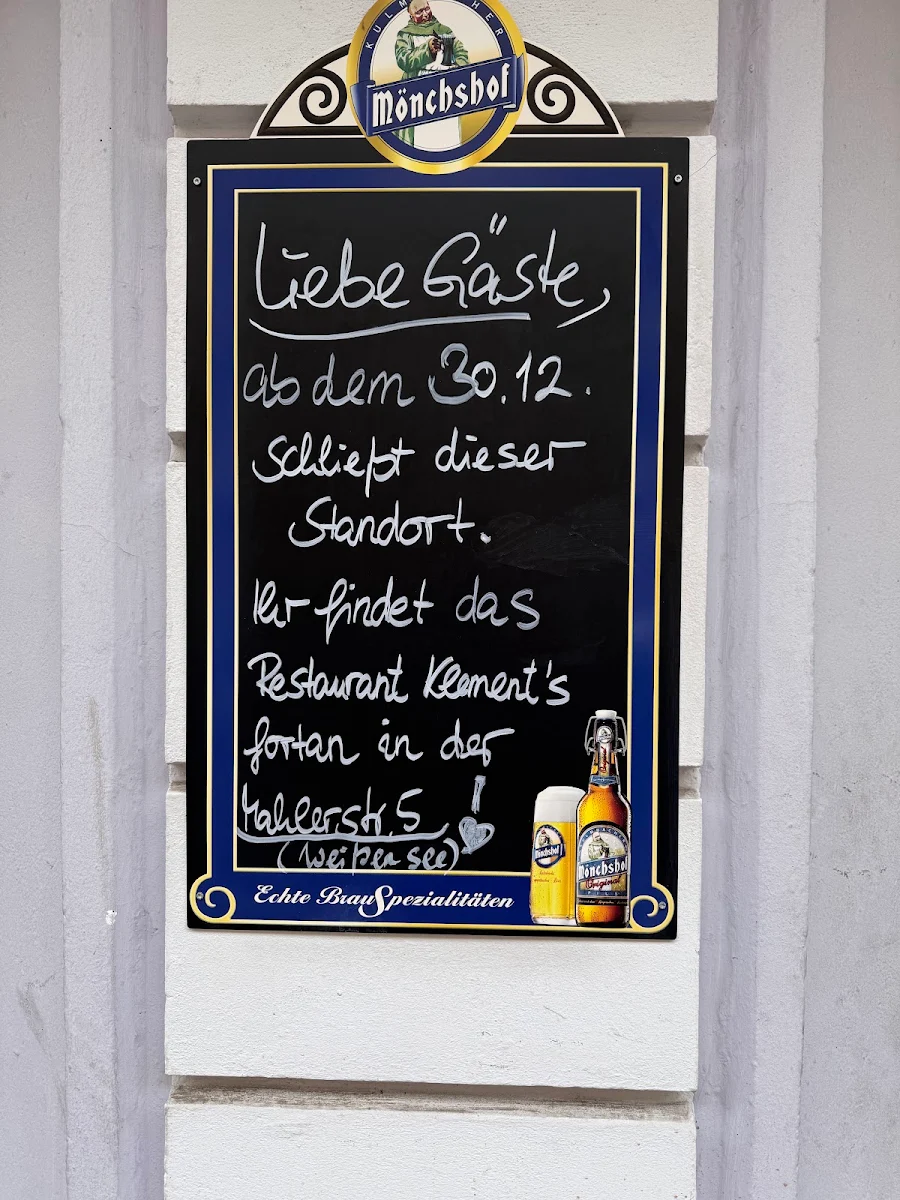 KULMBACHER
Mönchshof
Liebe Gäste,
ab dem 30.12.
Schließt dieser
Standort.
Ihr findet das
Restaurant Klement's
fortan in der
Mahlerstr. 5 !
(Weißensee)
Mönchshof
Mönchshof
Original
PILS
Echte BrauSpezialitäten